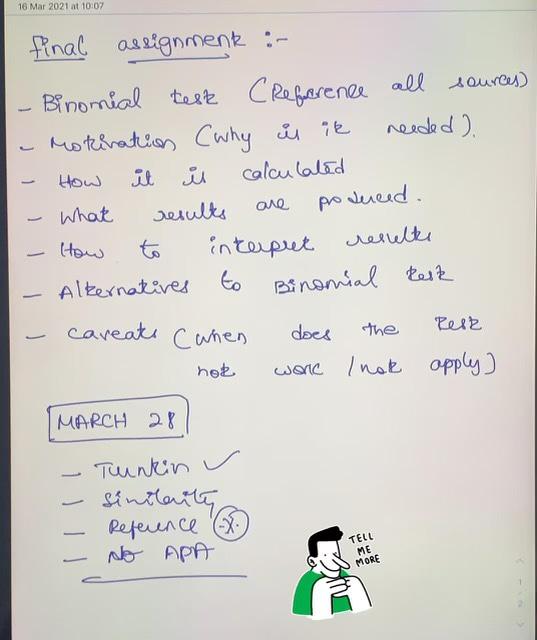 16 Mar 2021 at 10:07
final assignment :-
- Binomial test (Reference all sources)
- Motivation (why is it needed).
- How it is calculated
- What results are produced.
- How to interpret results
- Alternatives to Binomial test
- caveats (when does the test
not work / not apply)
MARCH 28
- Turnkin ✓
- Similarity
- Reference
- No APA
TELL
ME
MORE
1/2